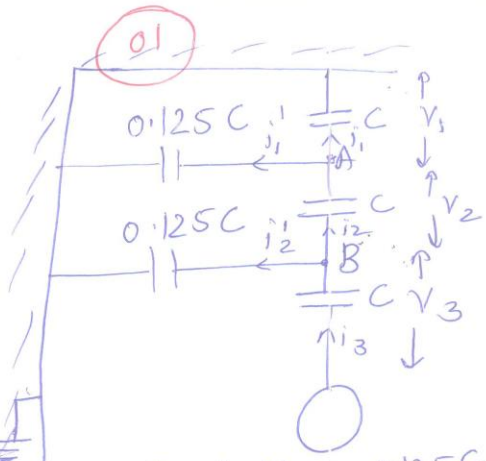 01
0.125C i₁' C i₁ V₁
A
0.125C i₂' C i₂ V₂
B
C V₃
i₃